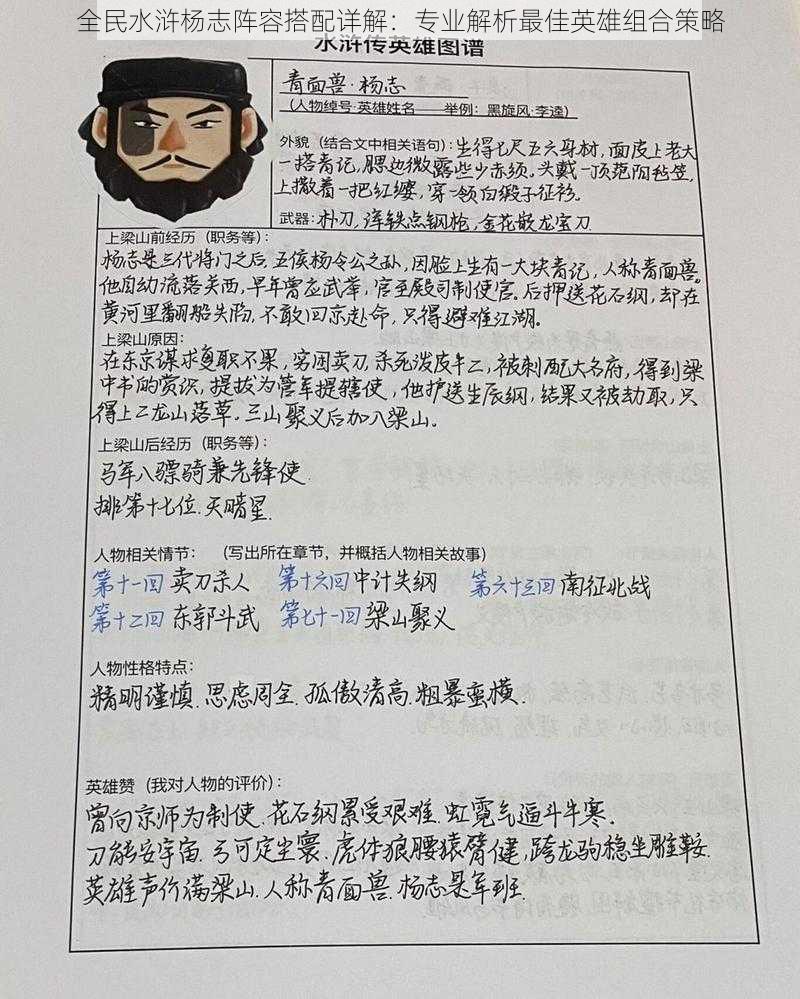 全民水浒杨志阵容搭配详解：专业解析最佳英雄组合策略
水浒传英雄图谱
青面兽·杨志
（人物绰号·英雄姓名——举例：黑旋风·李逵）
外貌（结合文中相关语句）：生得七尺五六身材，面皮上老大
一搭青记，腮边微露些少赤须。头戴一顶范阳毡笠，
上撒着一把红缨，穿一领白缎子征衫。
武器：朴刀，浑铁点钢枪，金花嵌龙宝刀
上梁山前经历（职务等）：
杨志是三代将门之后，五侯杨令公之孙，因脸上生有一大块青记，人称青面兽。
他自幼流落关西，早年曾应武举，官至殿司制使官。后押送花石纲，却在
黄河里翻船失陷，不敢回京赴命，只得避难江湖。
上梁山原因：
在东京谋求复职不果，穷困卖刀，杀死泼皮牛二，被刺配大名府，得到梁
中书的赏识，提拔为管军提辖使，他护送生辰纲，结果又被劫取，只
得上二龙山落草。三山聚义后加入梁山。
上梁山后经历（职务等）：
马军八骠骑兼先锋使.
排第十七位.天暗星.
人物相关情节： （写出所在章节，并概括人物相关故事）
第十一回 卖刀杀人 第十六回 中计失纲 第六十三回 南征北战
第十二回 东郭斗武 第七十一回 梁山聚义
人物性格特点：
精明谨慎.思虑周全.孤傲清高.粗暴蛮横.
英雄赞（我对人物的评价）：
曾向京师为制使.花石纲累受艰难.虹霓气逼斗牛寒.
刀能安宇宙.弓可定尘寰.虎体狼腰猿臂健，跨龙驹稳坐雕鞍.
英雄声价满梁山.人称青面兽.杨志是军班.